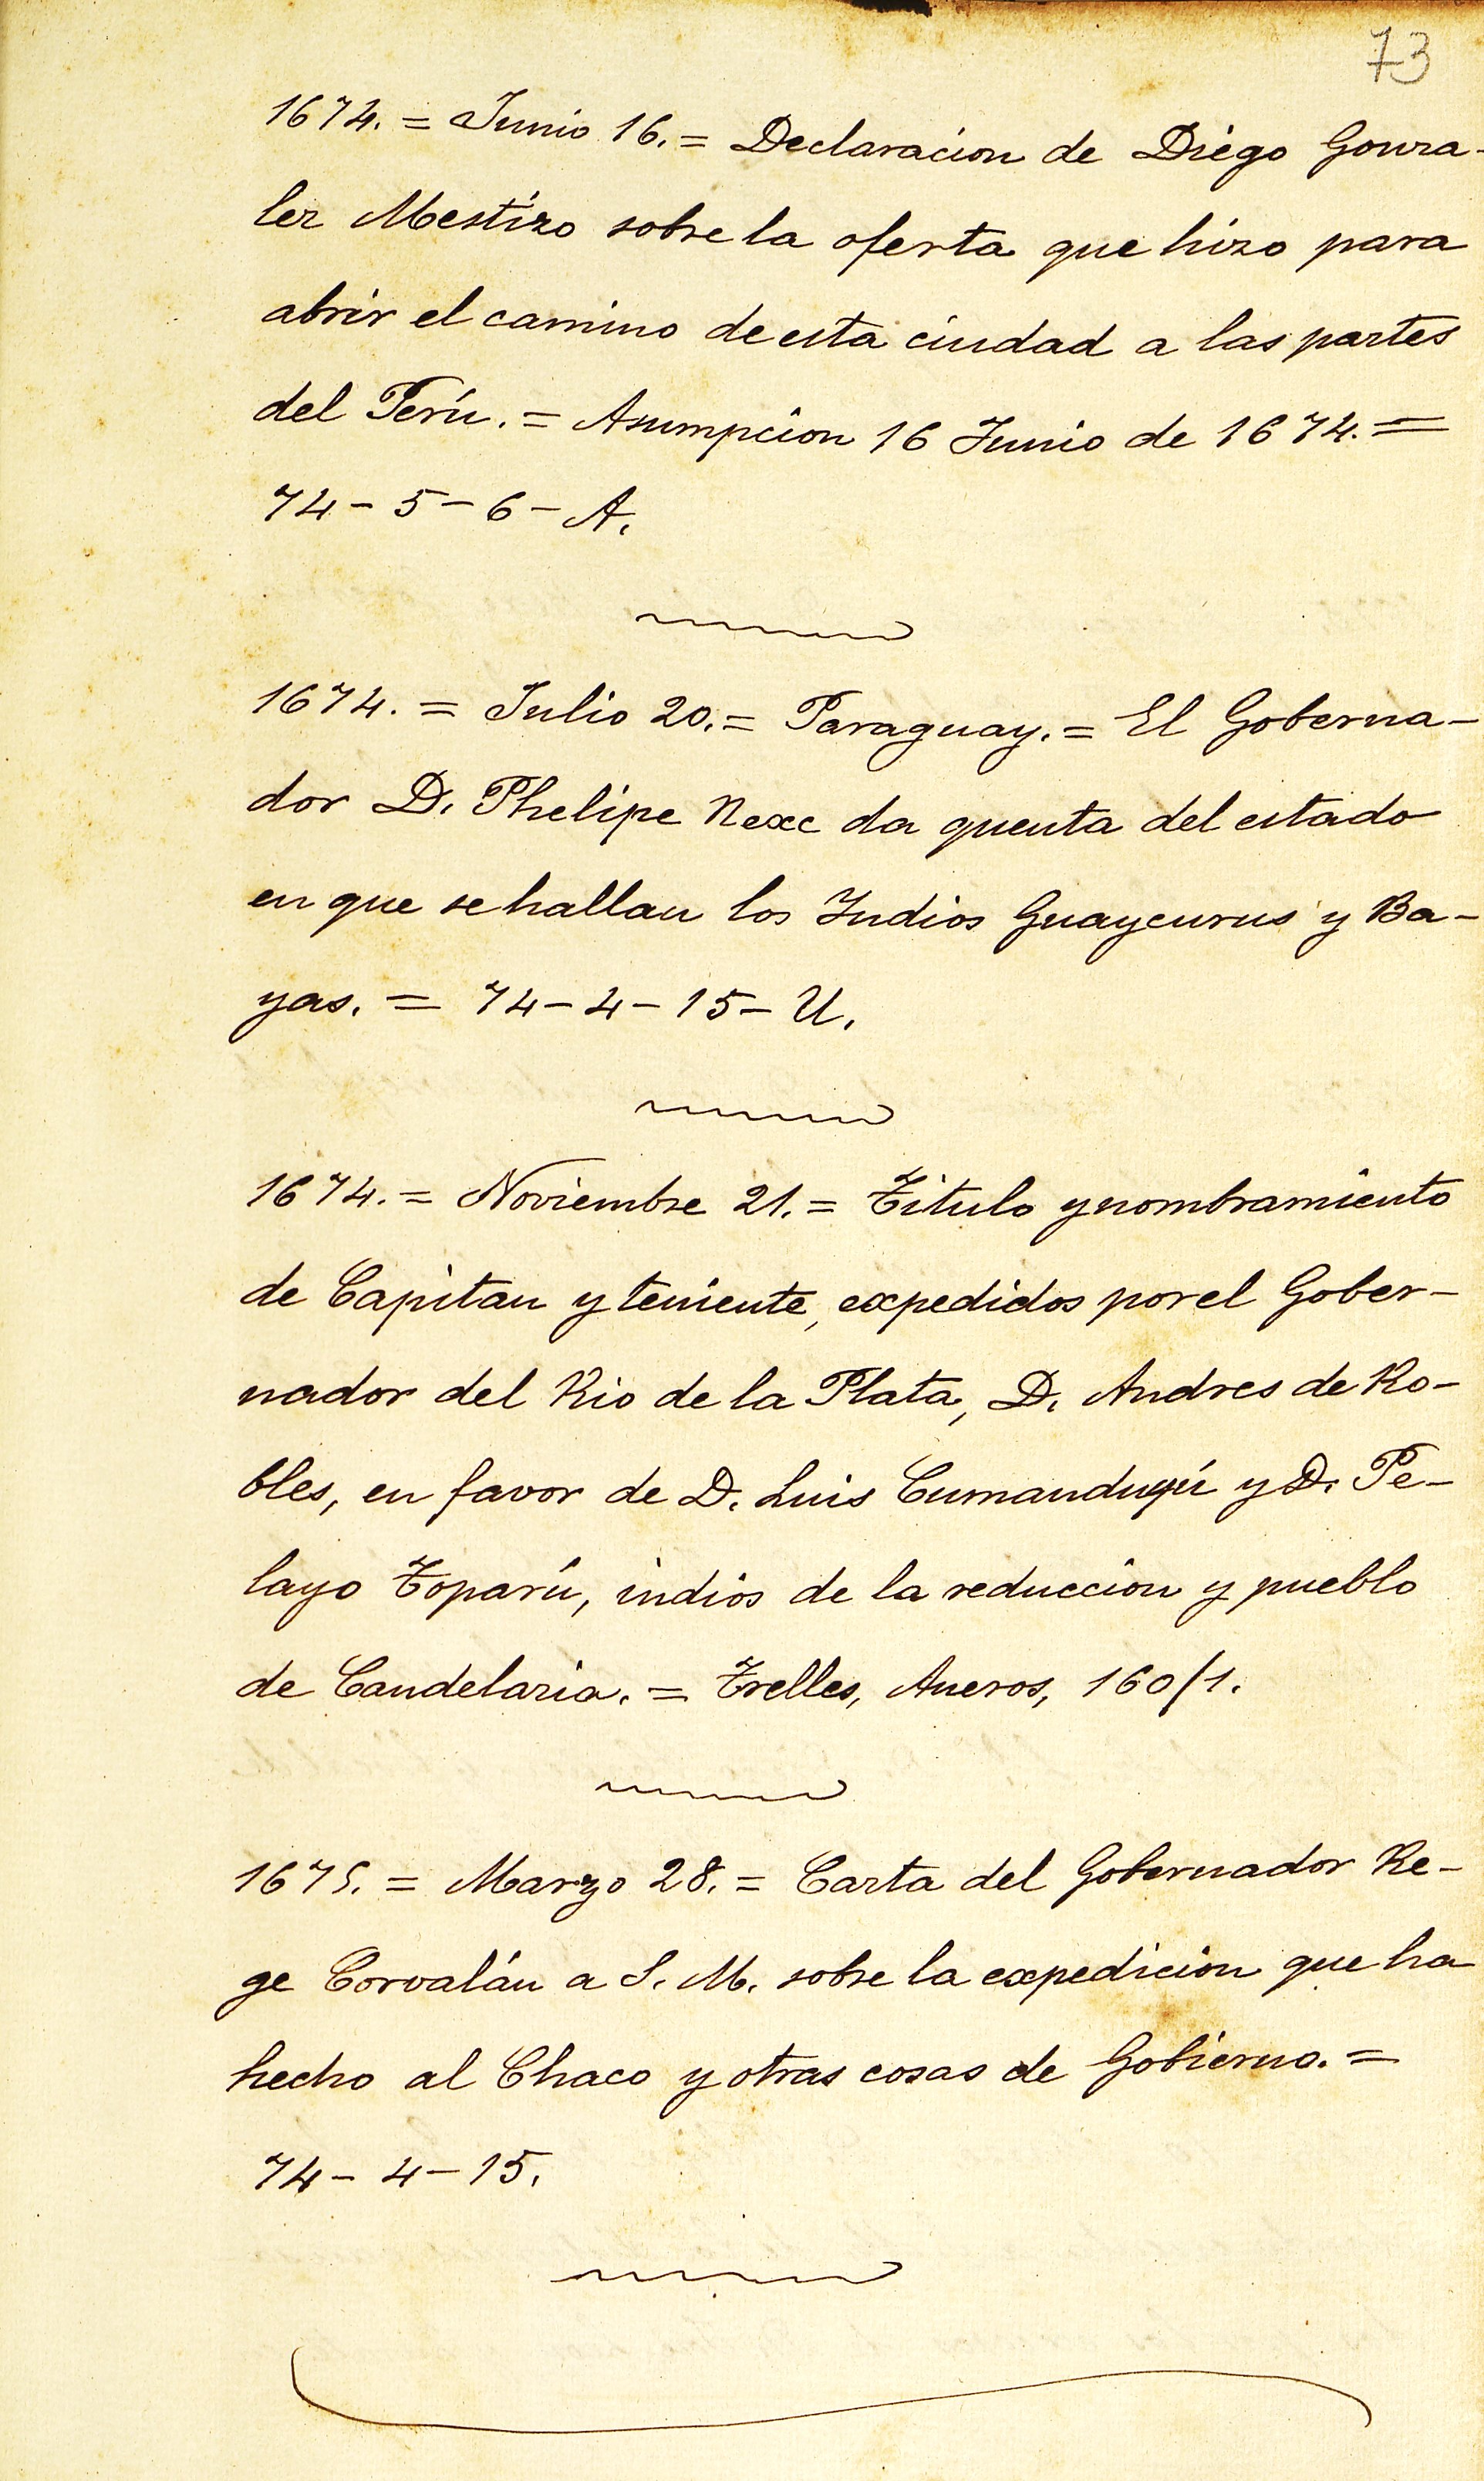 73
1674. = Junio 16. = Declaracion de Diego Gonza-
lez Mestizo sobre la oferta que hizo para
abrir el camino de esta ciudad a las partes
del Perú. = Asumpcion 16 Junio de 1674. =
74 - 5 - 6 - A.
1674. = Julio 20. = Paraguay. = El Goberna-
dor D. Phelipe Rexc da quenta del estado
en que se hallan los Indios Guaycurus y Ba-
yas. = 74 - 4 - 15 - U.
1674. = Noviembre 21. = Titulo y nombramiento
de Capitan y teniente, expedidos por el Gober-
nador del Rio de la Plata, D. Andres de Ro-
bles, en favor de D. Luis Cumanduyú y D. Pe-
layo Toparú, indios de la reduccion y pueblo
de Candelaria. = Trelles, Anexos, 160/1.
1675. = Marzo 28. = Carta del Gobernador Re-
ge Corvalán a S. M. sobre la expedicion que ha
hecho al Chaco y otras cosas de Gobierno. =
74 - 4 - 15.